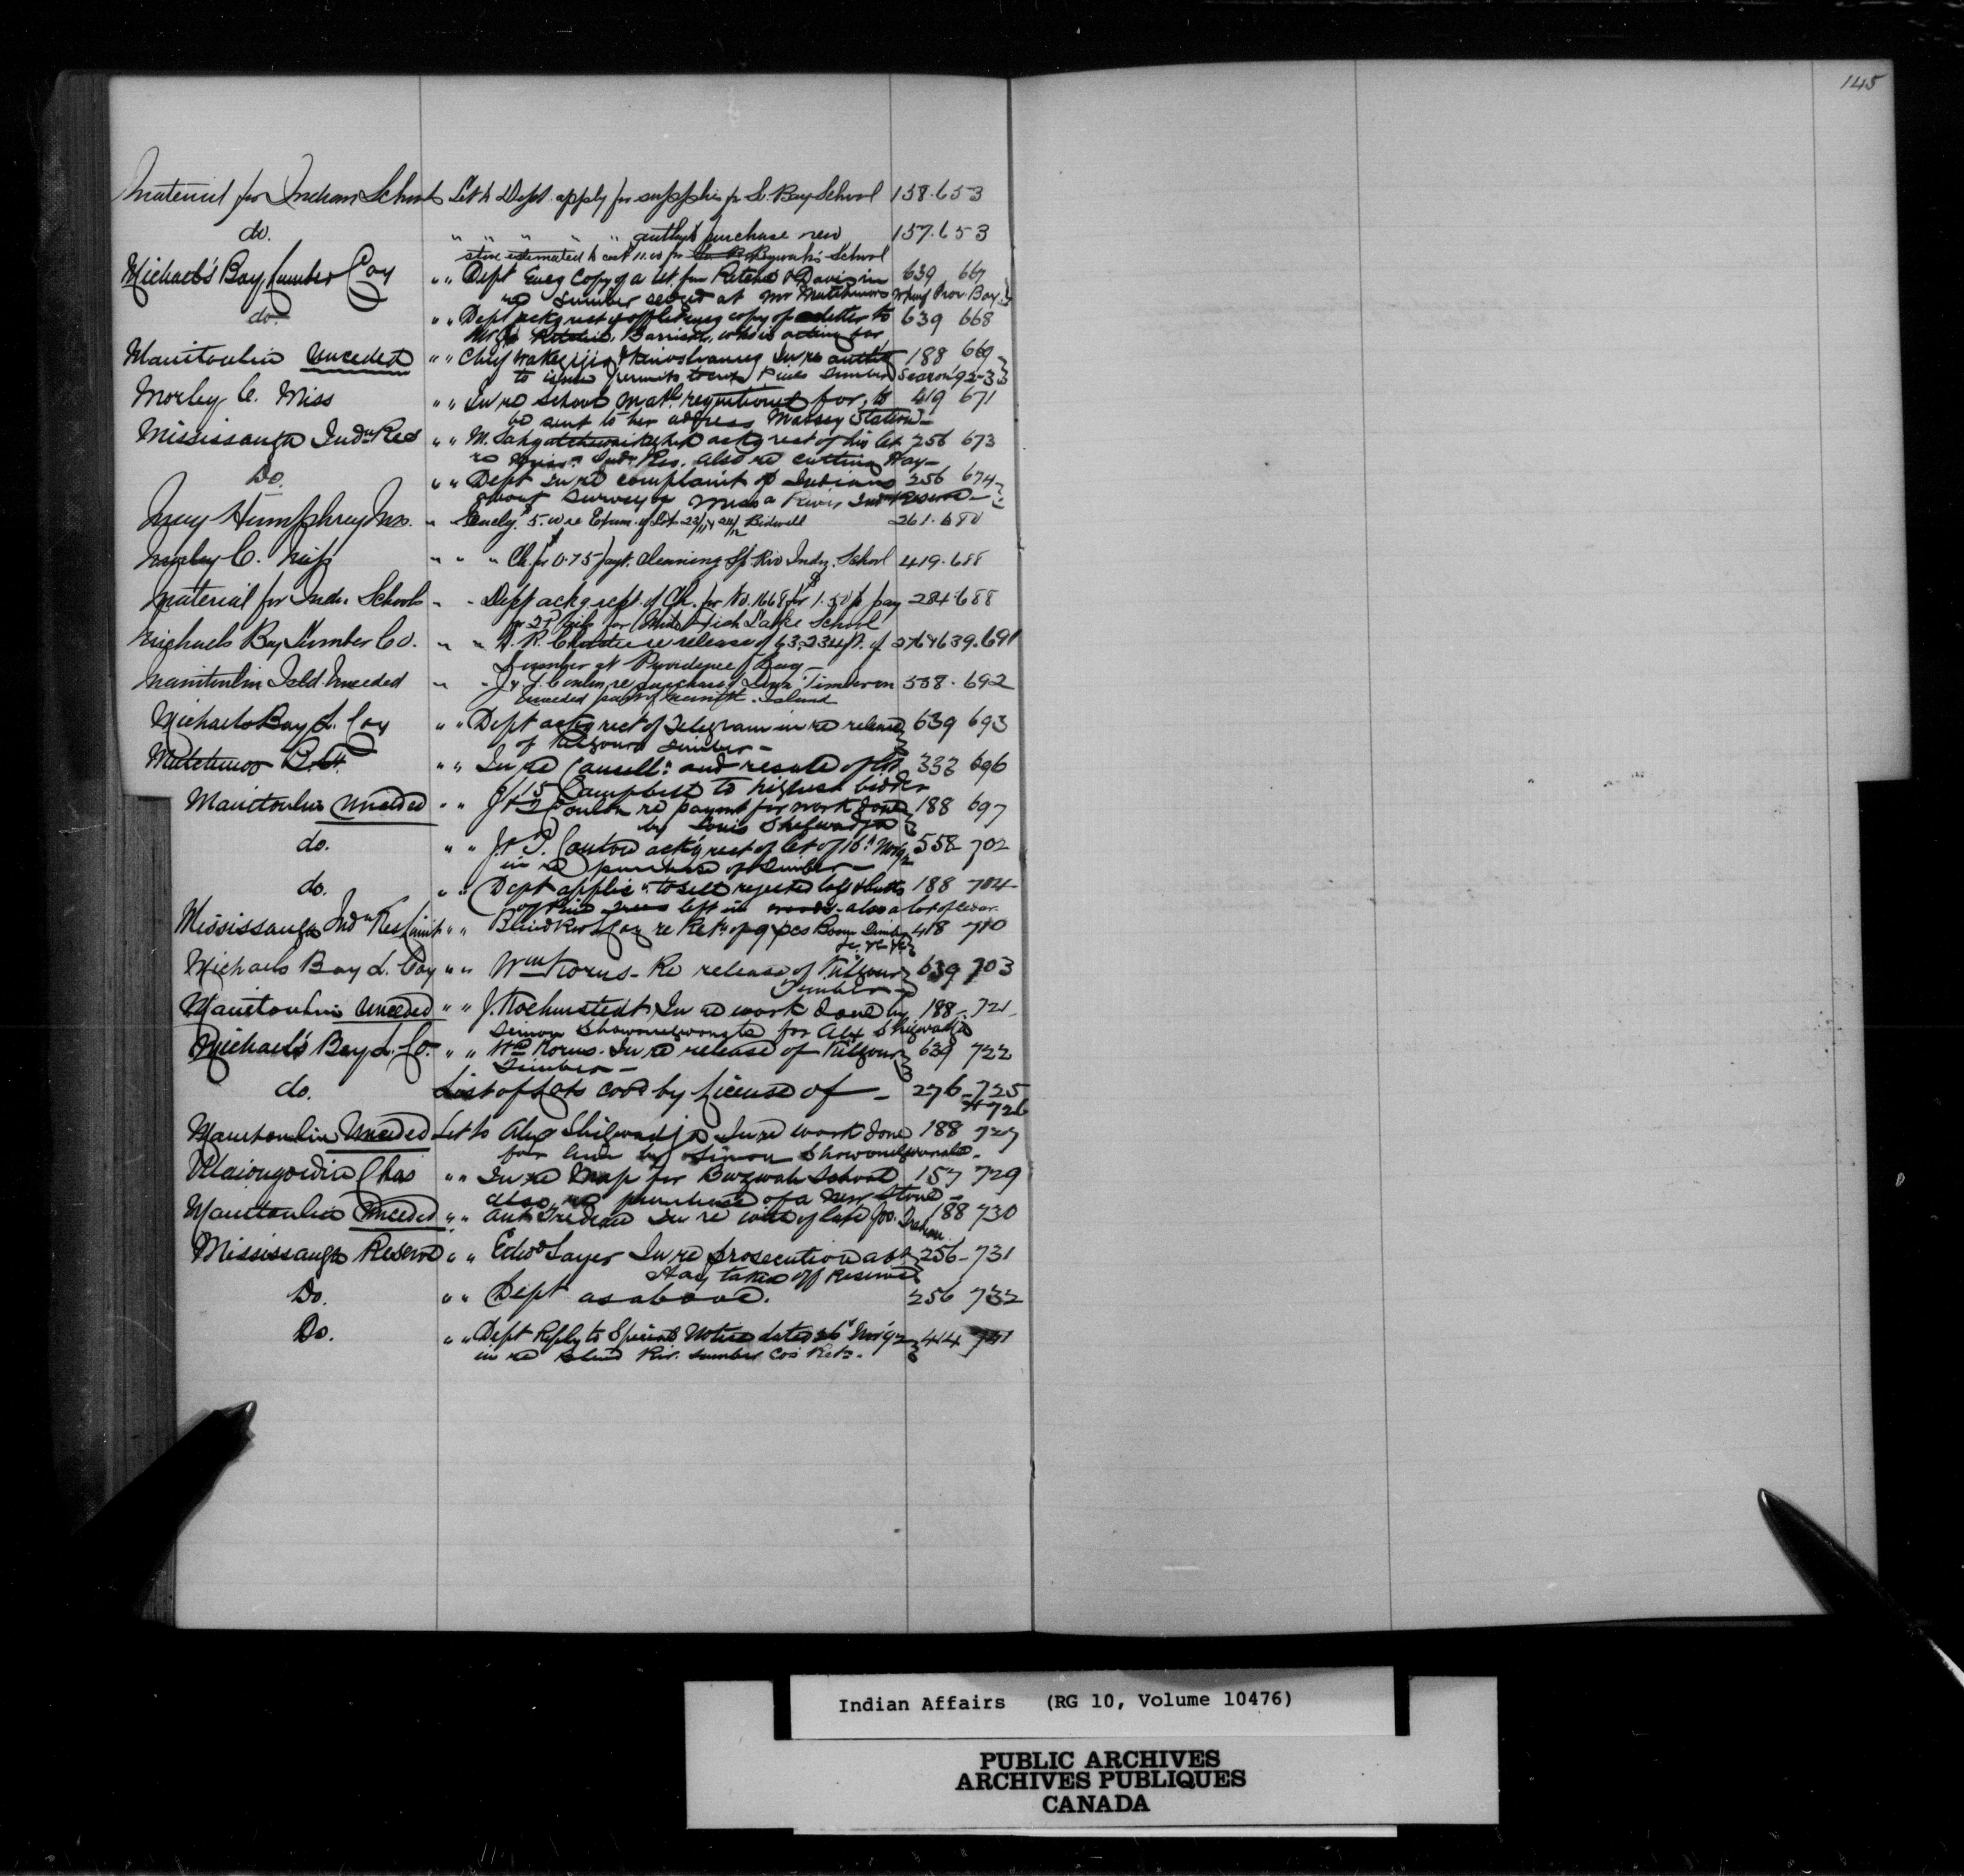 145
Material for Indian Schools Let to Dept. apply for supplies for S. Bay School 158.653
do. " " " " " authy to purchase new 157.653
stove estimated to cost 11.00 for Buzwah's School
Michael's Bay Lumber Coy " " Dept Encg Copy of a let. from & Davis in 639 667
re Lumber seized at Mr Mutchmors Wharf Prov. Bay
do " " Dept ackg rect of copy of letter to 639 668
Barrister, who is acting for
Manitoulin Unceded " " Chief In re authy 188 669
to issue permits to cut Pine Lumber Season '92-3
Morley C. Miss " " In re School Matl. requisitioned for, to 419 671
be sent to her address Massey Station
Mississauga Indn Res " " M. ackg rect of his let 256 673
re Indn Res. also re cutting Hay
Do. " " Dept In re complaint of Indians 256 674
about Survey of Missa River Indn Reserve
May Humphrey Mrs. " 5. re Exam. of Lots 23/11 & 24/12 Bidwell 261.680
Morley C. Miss " " " Ch. for 0.75 payt. cleaning Sp. Riv Indn. School 419.688
Material for Indn. Schools " " Dept ackg rect. of Ch. for No. 1668 for 1.50 to pay 284.688
for White Fish Lake School
Michaels Bay Lumber Co. " " A. R. re release of 63,234 ft. of 276 & 639.691
Lumber at Providence Bay
Manitoulin Isld. Unceded " " J & T. Conlon re purchase Timber on 558.692
unceded part of Manitn. Island
Michaels Bay L. Coy " " Dept ackg rect of Telegram in re release 639 693
of Kilgour Lumber
Mutchmor " " In re Cancelln and resale of lot 333 696
8/15 Campbell to highest bidder
Manitoulin Unceded " " J & T Conlon re paymt for work done 188 697
by Louis Shegwadja
do. " " J. & T. Conlon ackg rect of let of 16th Nov 92 558 702
in re purchase of Timber
do. " " Dept applicn to sell rejected logs & butts 188 704
of Pine trees left in woods also a lot of Cedar
Mississauga Indn Res Limit " " Blind Riv L Coy re Retn of 9 pcs Boom Timber 418 710
Michaels Bay L. Coy " " Wm Korus - Re release of Kilgour 639 703
Timber
Manitoulin Unceded " " J. In re work done by 188 721
Simon for Alex Shegwadja
Michael's Bay L. Co. " " Wm Korus. In re release of Kilgour 639 722
Timber
do. List of Lots covd by License of 276 725
& 726
Manitoulin Unceded Let to Alex Shegwadja In re work done 188 727
for him by Simon
Chas " " In re Map for Buzwah School 157 729
also re purchase of a new Stove
Manitoulin Unceded " " In re will of late 188 730
Mississauga Reserve " " Edwd Sayer In re prosecution abt 256 731
Hay taken off Reserve
Do. " " Dept as above. 256 732
Do. " " Dept Reply to Special Notice dated 26 Nov 92 414 741
in re Blind Riv. Lumber Co's Retn.
Indian Affairs (RG 10, Volume 10476)
PUBLIC ARCHIVES
ARCHIVES PUBLIQUES
CANADA